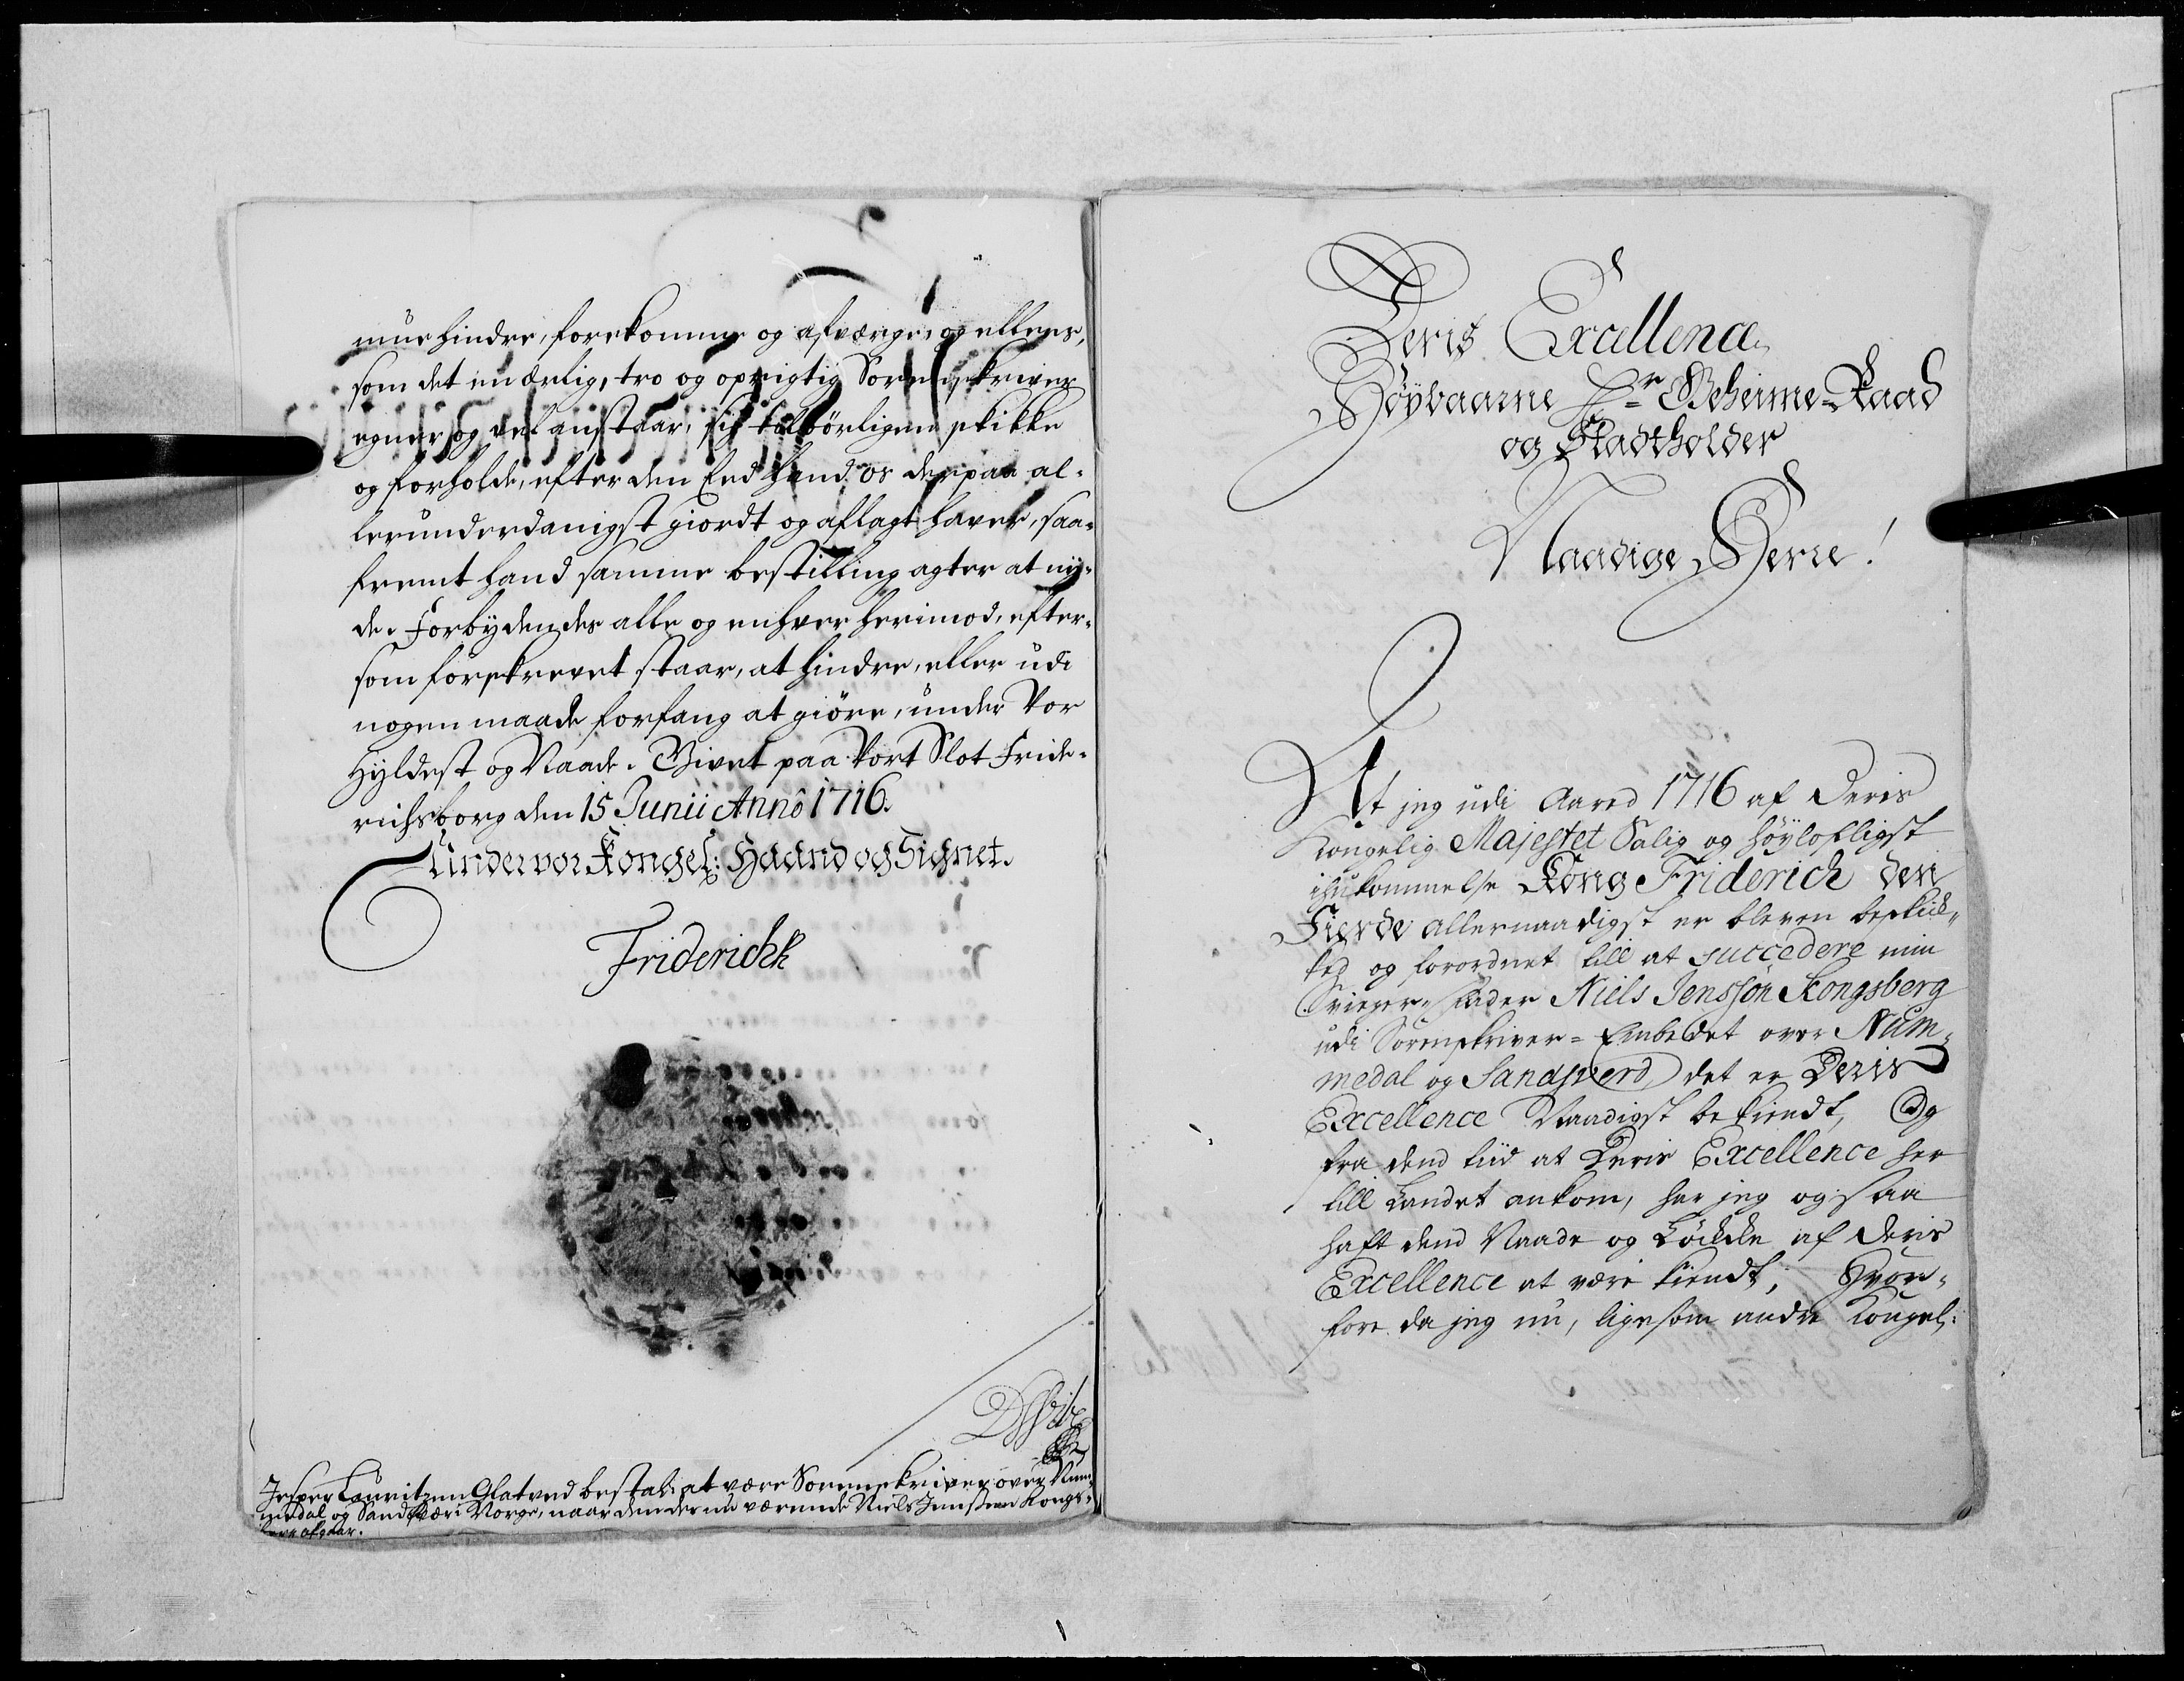 mue hindre, forekomme og afværge, og ellers,
som det en ærlig, tro og oprigtig Sorenskriver
egner og vel anstaar, sig tilbörligen skikke
og forholde, efter den Eed hand os derpaa al-
lerunderdanigst giordt og aflagt haver, saa-
fremt hand samme bestilling agter at ny-
de. Forbydendes alle og enhver herimod, efter-
som foreskrevet staar, at hindre, eller udi
nogen maade forfang at giöre, under Vor
Hyldest og Naade. Givet paa Vort Slot Fride-
richsborg den 15 Junii Annô 1716.
Under vor Kongel: Haand og Signet.
Friderich R
Jesper Lauritzen Glatved bestalt: at være Sorenskriver over Num-
medal og Sandsvær i Norge, naar den der nu værende Niels Jenssen Kongs-
berg afgaar.
Deris Excellence
Höybaarne Hr Geheime-Raad
og Stadtholder
Naadige Herre!
At jeg udi Aared 1716 af Deris
Kongelig Majestet Salig og höylofligst
ihukommelse Kong Friderich den
Fierde allernaadigst er bleven beskik-
ked og forordnet till at succedere min
Svieger-Fader Niels Jensson Kongsberg
udi Sorenskriver-Embedet over Num-
medal og Sandsverd, det er Deris
Excellence Naadigst bekiendt, Og
fra dend tiid at Deris Excellence her
till Landet ankom, har jeg ogsaa
haft dend Naade og Löcke af Deris
Excellence at være kiendt; Hvor-
fore da jeg nu, ligesom andre Kongel: